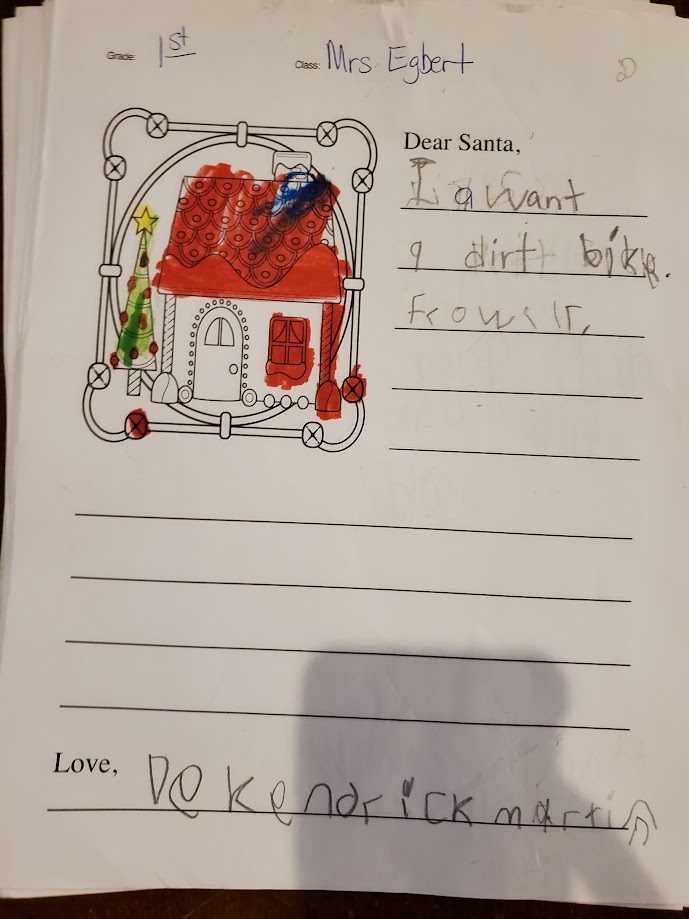 Grade: 1st
Class: Mrs. Egbert
Dear Santa,
I a want
a dirt bike.
Love, DeKendrick martin